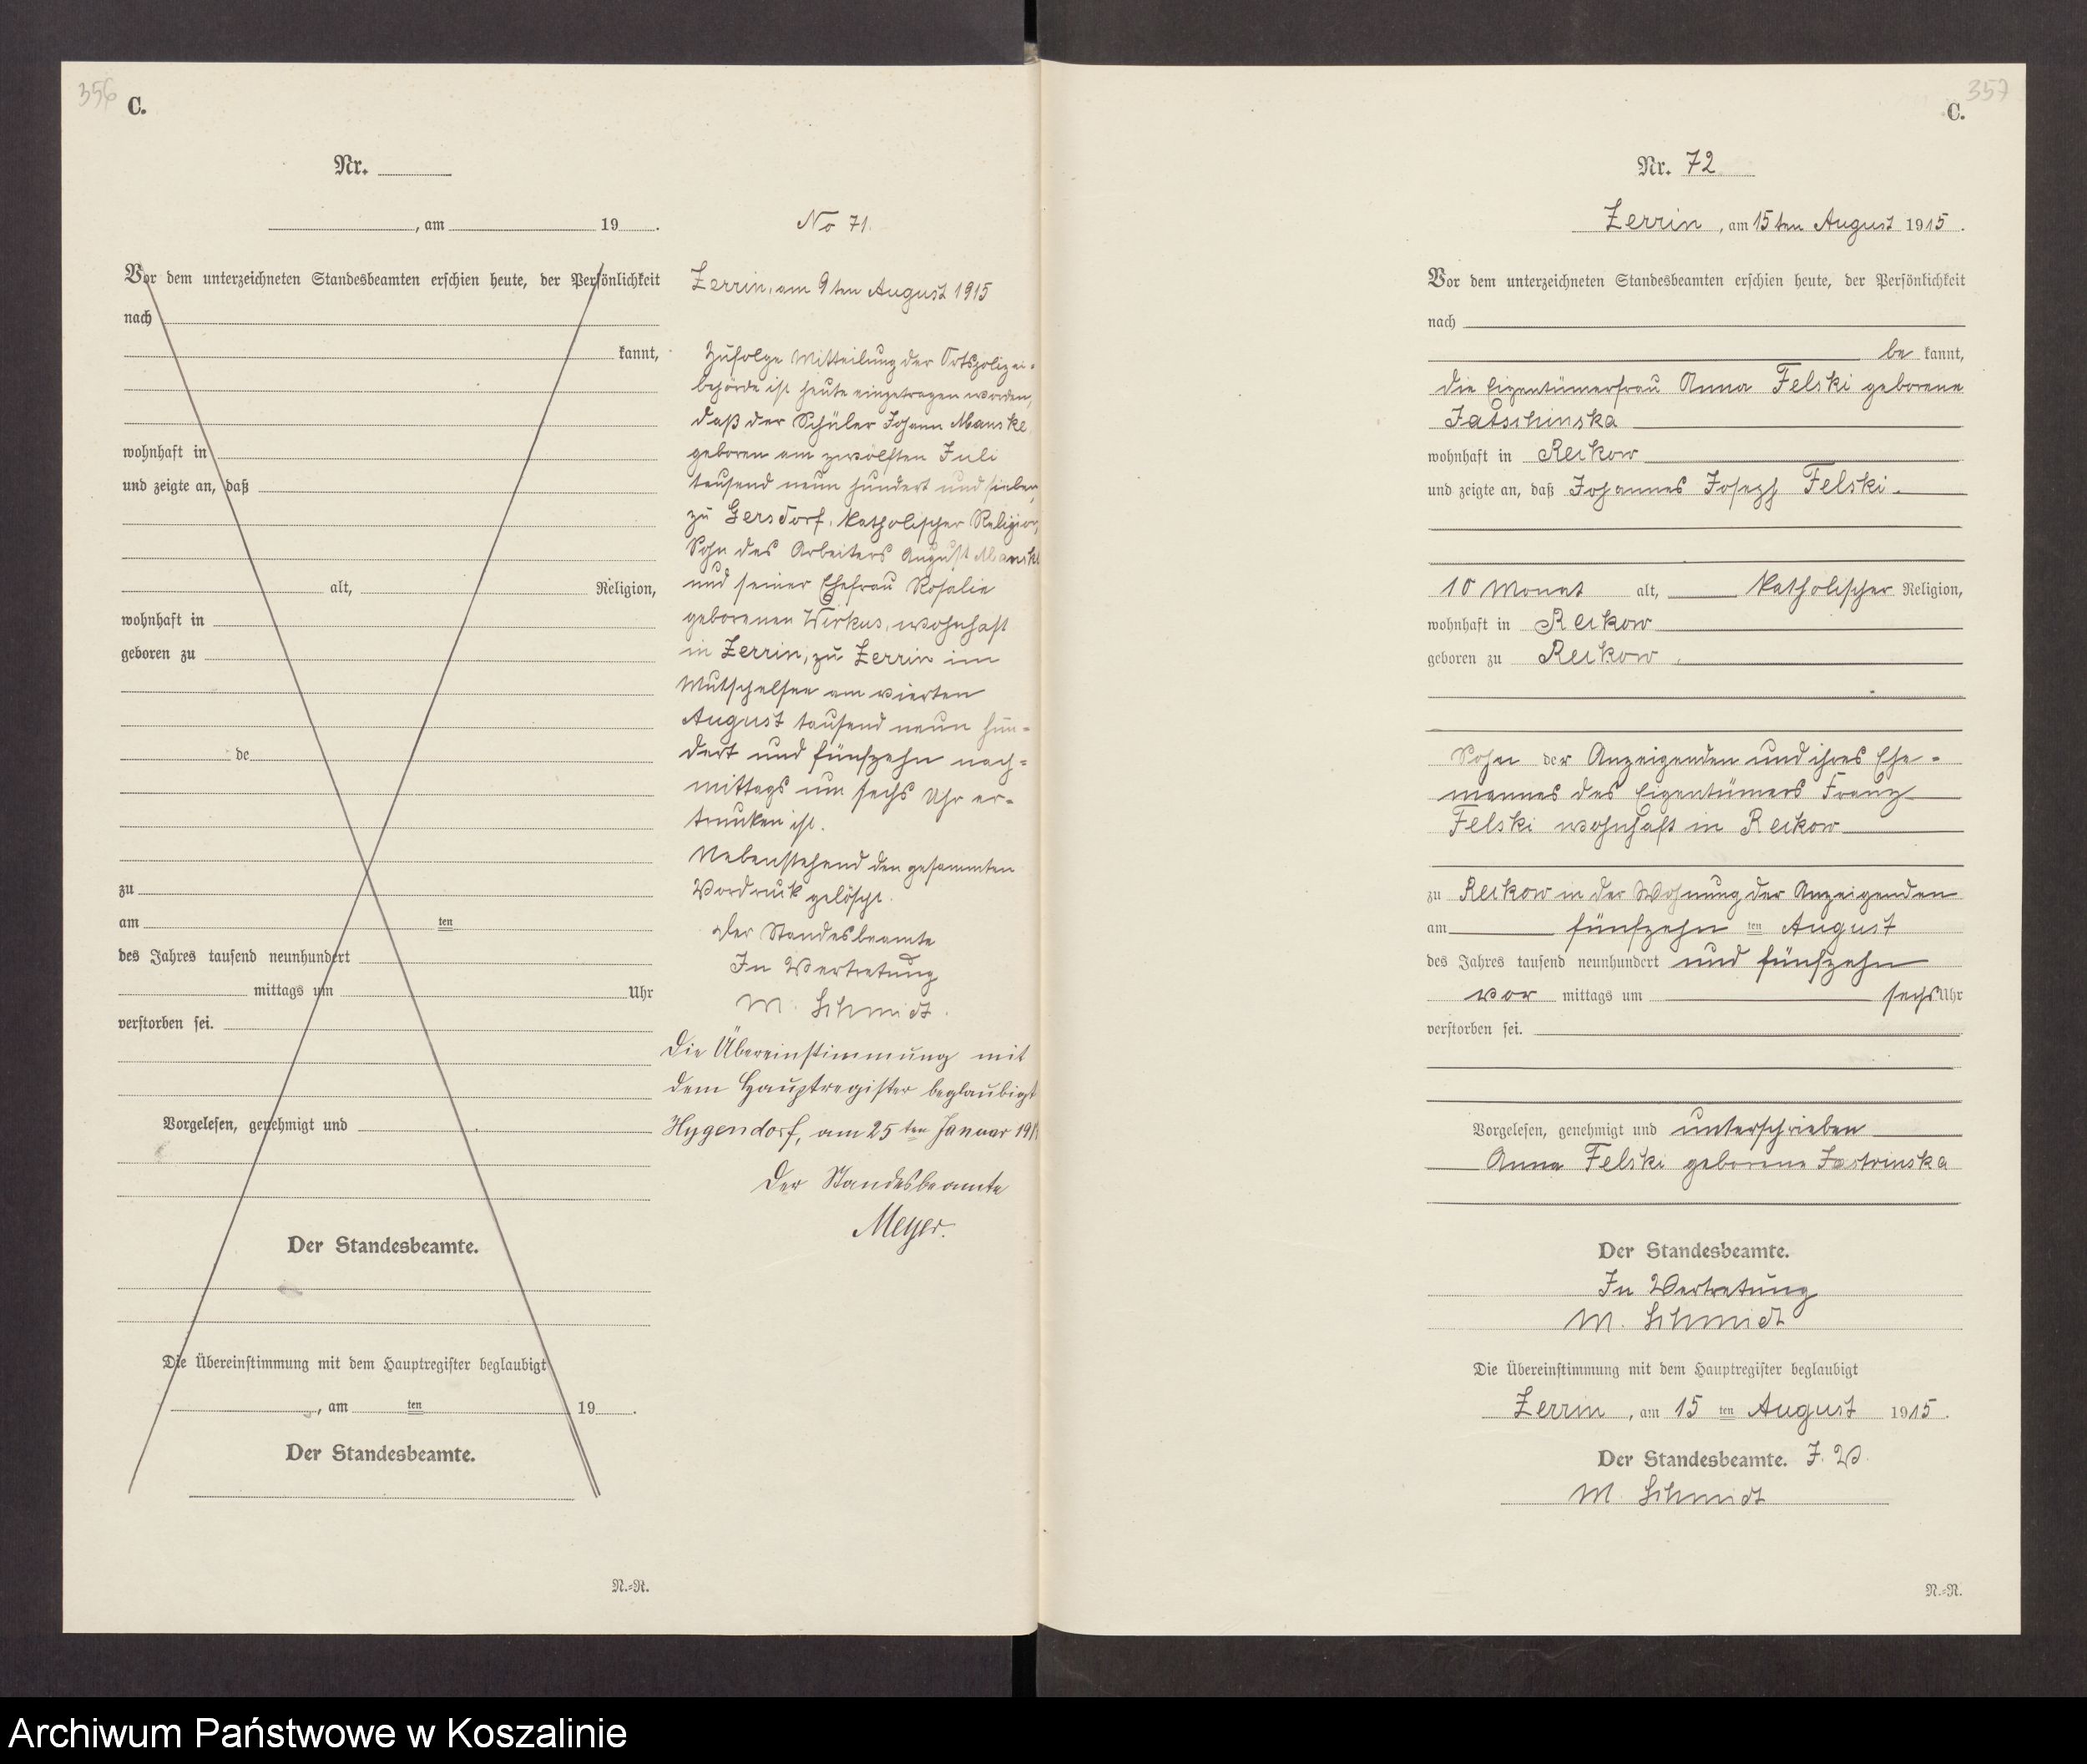 356
C.
Nr.
, am 19 .
Vor dem unterzeichneten Standesbeamten erschien heute, der Persönlichkeit
nach
kannt,
wohnhaft in
und zeigte an, daß
alt, Religion,
wohnhaft in
geboren zu
de
zu
am ten
des Jahres tausend neunhundert
mittags um Uhr
verstorben sei.
Vorgelesen, genehmigt und
Der Standesbeamte.
Die Übereinstimmung mit dem Hauptregister beglaubigt
, am ten 19 .
Der Standesbeamte.
N.=N.
No 71.
Zerrin, am 9ten August 1915
Zufolge Mitteilung der Ortspolizei-
behörde ist heute eingetragen worden,
daß der Schüler Johann Manske
geboren am zwölften Juli
tausend neun hundert und sieben
zu Gersdorf, katholischer Religion,
Sohn des Arbeiters August Manske
und seiner Ehefrau Rosalie
geborenen Wirkus, wohnhaft
in Zerrin, zu Zerrin im
Mutschelsee am vierten
August tausend neun hun=
dert und fünfzehn nach=
mittags um sechs Uhr er=
trunken ist.
Nebenstehend den gesammten
Vordruck gelöscht.
Der Standesbeamte
In Vertretung
M. Schmidt.
Die Übereinstimmung mit
dem Hauptregister beglaubigt
Hygendorf, am 25 ten Januar
Der Standesbeamte
Meyer.
357
C.
Nr. 72
Zerrin, am 15ten August 1915.
Vor dem unterzeichneten Standesbeamten erschien heute, der Persönlichkeit
nach
be kannt,
die Eigentümerfrau Anna Felski geborene
Jatschinska
wohnhaft in Reikow
und zeigte an, daß Johannes Joseph Felski.
10 Monat alt, katholischer Religion,
wohnhaft in Reikow
geboren zu Reikow,
Sohn der Anzeigenden und ihres Ehe=
mannes des Eigentümers Franz
Felski wohnhaft in Reikow
zu Reikow in der Wohnung der Anzeigenden
am fünfzehn ten August
des Jahres tausend neunhundert und fünfzehn
vor mittags um sechs Uhr
verstorben sei.
Vorgelesen, genehmigt und unterschrieben
Anna Felski geborene Jastrinska
Der Standesbeamte.
In Vertretung
M. Schmidt
Die Übereinstimmung mit dem Hauptregister beglaubigt
Zerrin, am 15 ten August 1915.
Der Standesbeamte. J. V.
M. Schmidt
N.=N.
Archiwum Państwowe w Koszalinie